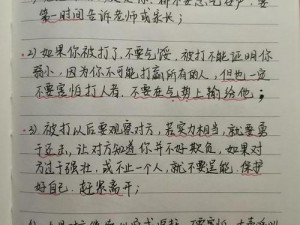 第一时间告诉老师或家长；
2) 如果你被打了，不要气馁，被打不能证明你
弱小，因为你不可能打赢所有的人，但也一定
不要害怕打人者，不要在气势上输给他；
3) 被打以后要观察对方，若实力相当，就要勇
于还击，让对方知道你并不好欺负，如果对
方过于强壮，或不止一个人，就不要逞能，保护
好自己，赶紧离开；